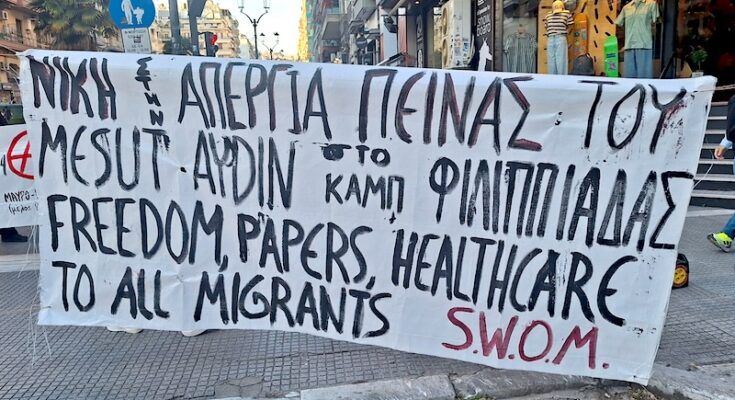 ΝΙΚΗ ΣΤΗΝ ΑΠΕΡΓΙΑ ΠΕΙΝΑΣ ΤΟΥ
MESUT AYDIN ΣΤΟ ΚΑΜΠ ΦΙΛΙΠΠΙΑΔΑΣ
FREEDOM, PAPERS, HEALTHCARE
TO ALL MIGRANTS S.W.O.M.
ΜΑΥΡΟ